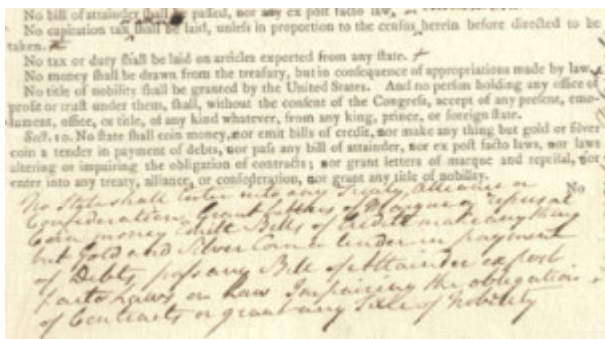 No bill of attainder shall be passed, nor any ex post facto law,
No capitation tax shall be laid, unless in proportion to the census herein before directed to be
taken.
No tax or duty shall be laid on articles exported from any state.
No money shall be drawn from the treasury, but in consequence of appropriations made by law.
No title of nobility shall be granted by the United States. And no person holding any office of
profit or trust under them, shall, without the consent of the Congress, accept of any present, emo-
lument, office, or title, of any kind whatever, from any king, prince, or foreign state.
Sect. 10. No state shall coin money, nor emit bills of credit, nor make any thing but gold or silver
coin a tender in payment of debts, nor pass any bill of attainder, nor ex post facto laws, nor laws
altering or impairing the obligation of contracts; nor grant letters of marque and reprisal, nor
enter into any treaty, alliance, or confederation, nor grant any title of nobility.
No
No State shall Enter into any Treaty, Alliance or
Confederation, Grant Letters of Marque or reprisal
Coin money Emitt Bills of Credit make any thing
but Gold and Silver Coin a tender in payment
of Debts, pass any Bill of Attainder ex post
facto Laws or Law Impairing the obligation
of Contracts or grant any Title of Nobility